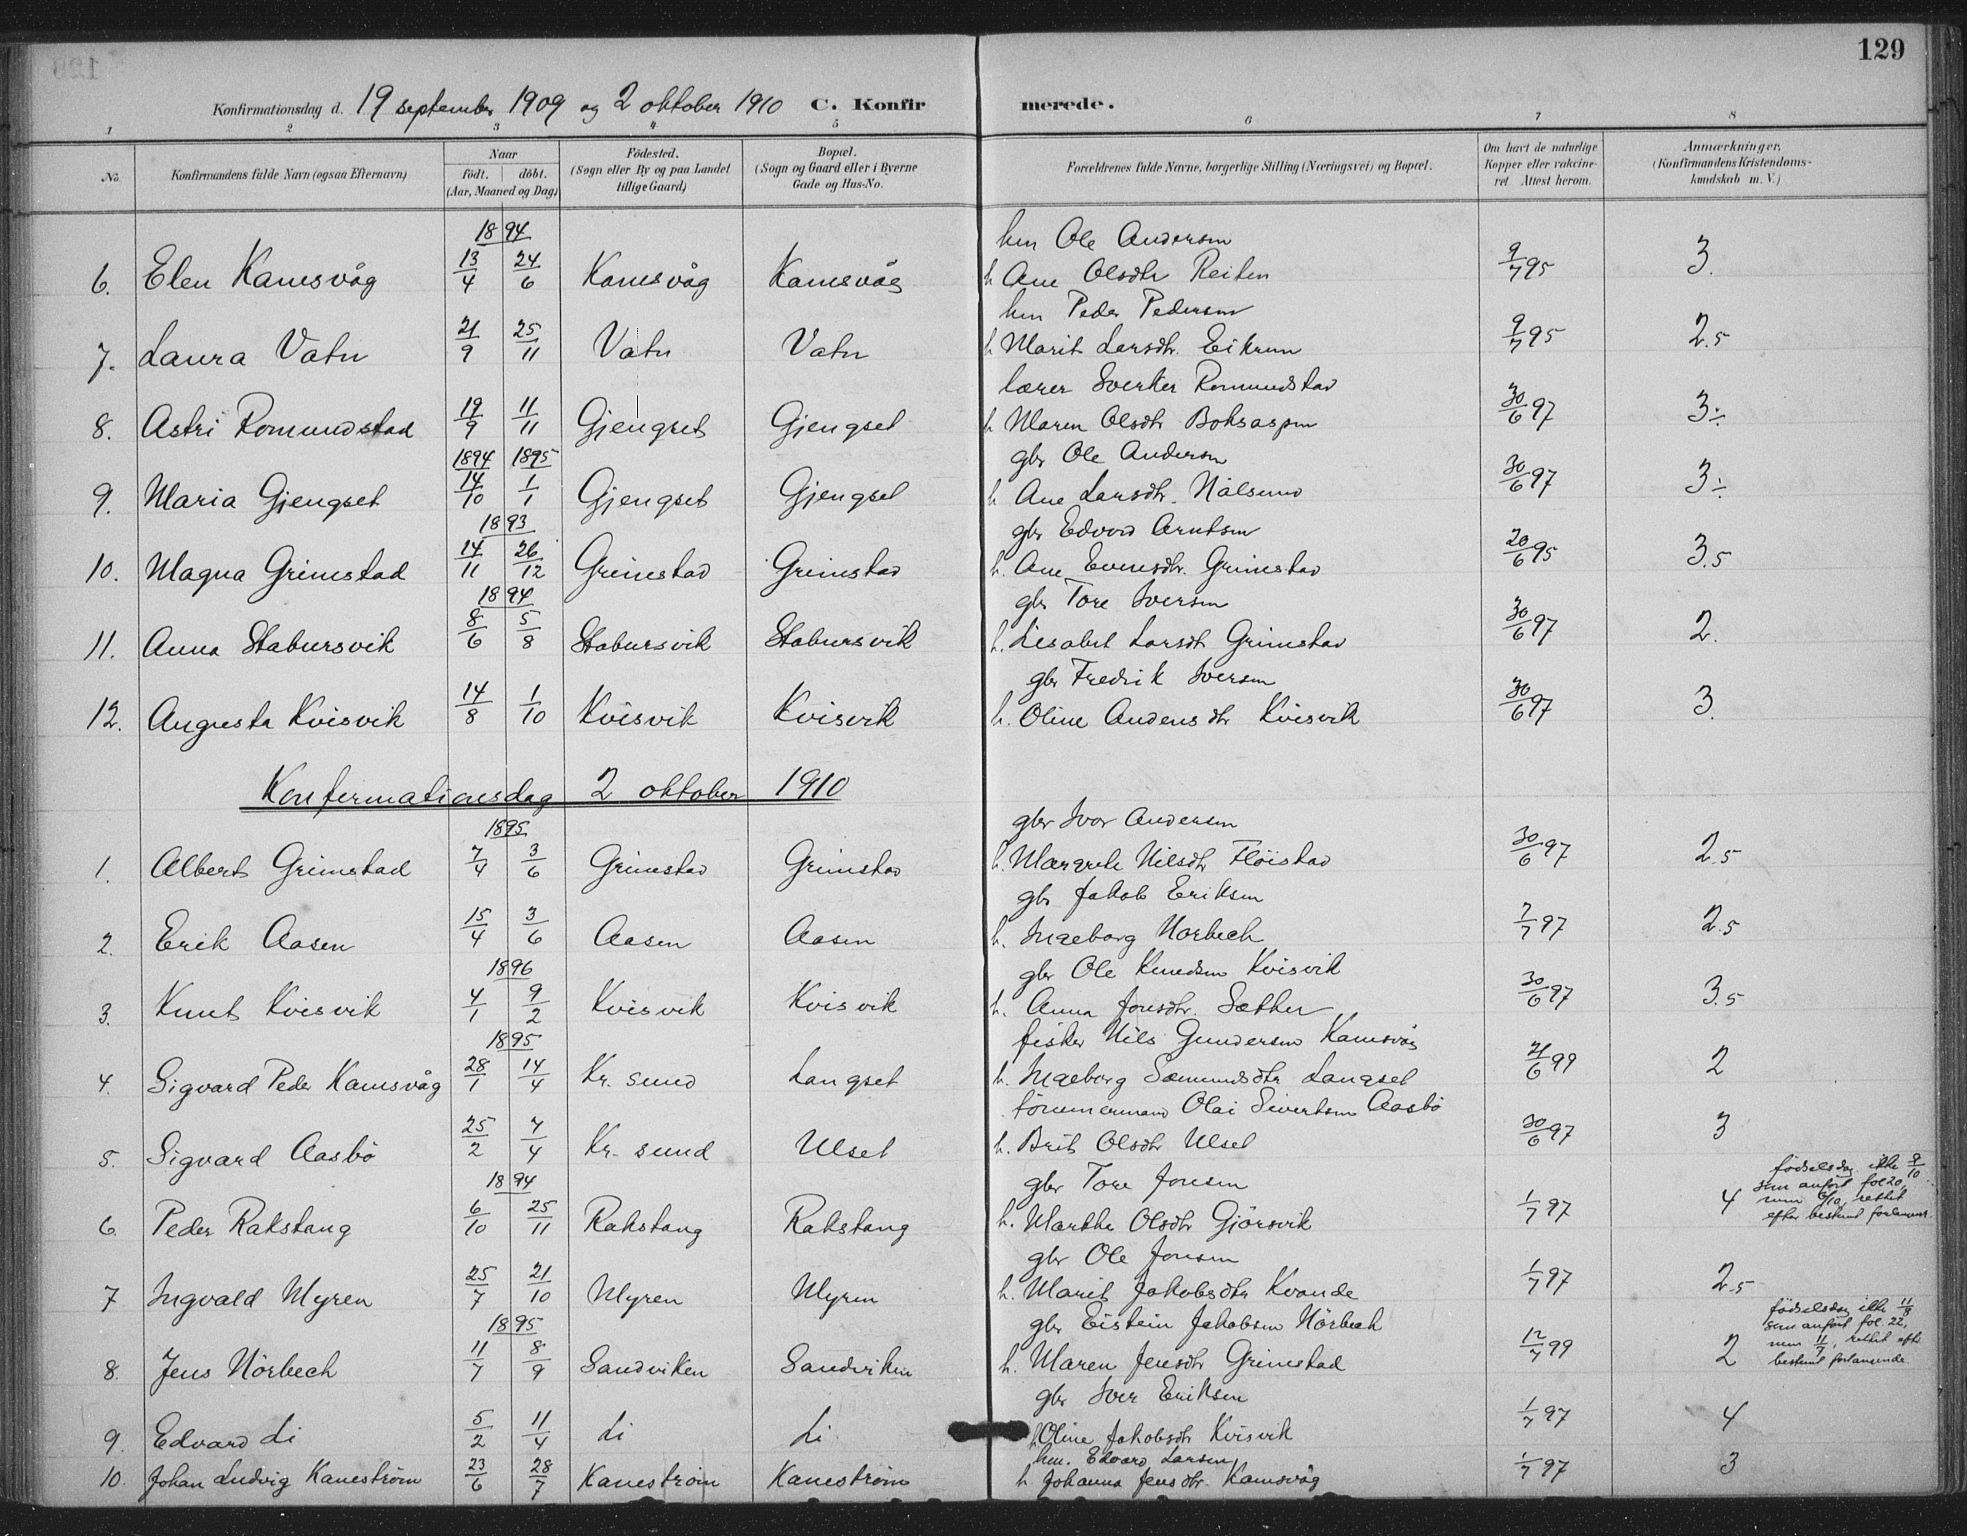 129
Konfirmationsdag d. 19 september 1909 og 2 oktober 1910 C. Konfirmerede.
1 2 3 4 5 6 7 8
No. Konfirmandens fulde Navn (ogsaa Efternavn) Naar født. døbt. (Aar, Maaned og Dag) Fødested. (Sogn eller By og paa Landet tillige Gaard) Bopæl. (Sogn og Gaard eller i Byerne Gade og Hus-No. Forældrenes fulde Navne, borgerlige Stilling (Næringsvei) og Bopæl. Om havt de naturlige Kopper eller vaccineret. Attest herom. Anmærkninger. (Konfirmandens Kristendomskundskab m. V.)
1894 hm Ole Andersen
6. Elen Kanesvåg 13/4 24/6 Kanesvåg Kanesvåg h Ane Olsdtr Reiten 9/7 95 3.
hm Peder Pedersen
7. Laura Vatn 21/9 25/11 Vatn Vatn h Marit Larsdtr. Eikrem 9/7 95 2.5
lærer Sverker Romundstad
8. Astri Romundstad 19/9 11/11 Gjengset Gjengset h Maren Olsdtr 30/6 97 3÷
1894 1895 gbr Ole Andersen
9. Maria Gjengset 14/10 1/1 Gjengset Gjengset h Ane Larsdtr. Nålsund 30/6 97 3÷
1893 gbr Edvard Arntsen
10. Magna Grimstad 14/11 26/12 Grimstad Grimstad h. Ane Evensdtr. Grimstad 20/6 95 3.5
1894 gbr Tore Iversen
11. Anna Stabursvik 8/6 5/8 Stabursvik Stabursvik h. Lisabet Larsdtr Grimstad 30/6 97 2.
gbr Fredrik Iversen
12. Augusta Kvisvik 14/8 1/10 Kvisvik Kvisvik h. Oline Andersdtr Kvisvik 30/6 97 3.
Konfirmationsdag 2 oktober 1910
1895 gbr Ivar Andersen
1. Albert Grimstad 7/4 3/6 Grimstad Grimstad h. Margrete Nilsdtr Fløistad 30/6 97 2.5
gbr Jakob Eriksen
2. Erik Aasen 15/4 3/6 Aasen Aasen h. Ingeborg Norbech 7/7 97 2.5
1896 gbr Ole Knudsen Kvisvik
3. Knut Kvisvik 4/1 9/2 Kvisvik Kvisvik h. Anna Jonsdtr. Sæther 30/6 97 3.5
1895 fisker Nils Gundersen Kanesvåg
4. Sigvard Peder Kanesvåg 28/1 14/4 Kr. sund Langset h. Ingeborg Sæmundsdtr Langset 21/6 99 2
tömmermand Olai Sivertsen Aasbö
5. Sigvard Aasbö 25/2 7/4 Kr. sund Ulset h. Brit Olsdtr Ulset 30/6 97 3
1894 gbr Tore Jonsen
6. Peder Rakstang 6/10 25/11 Rakstang Rakstang h. Marthe Olsdtr Gjörsvik 1/7 97 4 födselsdag ikke 9/10
som anfört fol 20,
men 6/10, rettet
efter bestemt forlangende.
gbr Ole Jonsen
7 Ingvald Myren 25/7 21/10 Myren Myren h. Marit Jakobsdtr Kvande 1/7 97 2.5
1895 gbr Eistein Jakobsen Nörbech
8. Jens Nörbech 11/7 8/9 Sandviken Sandviken h. Maren Jensdtr Grimstad 12/7 99 2 födselsdag ikke 11/8
som anfört fol. 22,
men 11/7, rettet efter
bestemt forlangende.
gbr Iver Eriksen
9. Edvard Li 5/2 11/4 Li Li h Oline Jakobsdtr Kvisvik 1/7 97 4
hm. Edvard Larsen
10. Johan Ludvig Kaneström 23/6 28/7 Kaneström Kaneström h Johanna Jensdtr. Kanesvåg 1/7 97 3